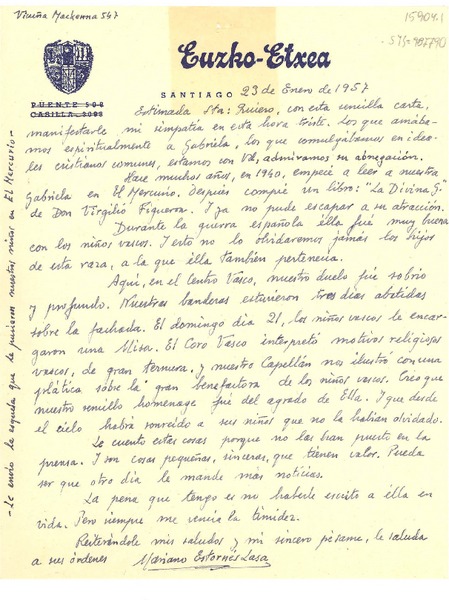 Vicuña Mackenna 547
15904.1
Euzko-Etxea
SANTIAGO 23 de Enero de 1957
PUENTE 508
CASILLA 3098
Estimada Srta: quiero, con esta sencilla carta,
manifestarle mi simpatía en esta hora triste. Los que amába-
mos espiritualmente a Gabriela, los que comulgábamos en idea-
les cristianos comunes, estamos con Vd, admiramos su abnegación.
Hace muchos años, en 1940, empecé a leer a nuestra
Gabriela en El Mercurio. Después compré un libro: "La Divina G."
de Don Virgilio Figueroa. I ya no pude escapar a su atracción.
Durante la guerra española élla fué muy buena
con los niños vascos. I esto no lo olvidaremos jamás los hijos
de esta raza, a la que élla también pertenecía.
Aquí, en el Centro Vasco, nuestro duelo fué sobrio
y profundo. Nuestras banderas estuvieron tres días abatidas
sobre la fachada. El domingo día 21, los niños vascos le encar-
garon una Misa. El Coro Vasco interpretó motivos religiosos
vascos, de gran ternura, y nuestro Capellán nos ilustró con una
plática sobre la gran benefactora de los niños vascos. Creo que
nuestro sencillo homenage fué del agrado de Ella. I que desde
el cielo habrá sonreido a sus niños que no la habían olvidado.
Le cuento estas cosas porque no las han puesto en la
prensa. I son cosas pequeñas, sinceras, que tienen valor. Pueda
ser que otro día le mande más noticias.
La pena que tengo es no haberle escrito a élla en
vida. Pero siempre me venía la timidez.
Reiterándole mis saludos y mi sincero pésame, le saluda
a sus órdenes Mariano Estornés Lasa
- Le envío la esquela que le pusieron nuestros niños en El Mercurio -